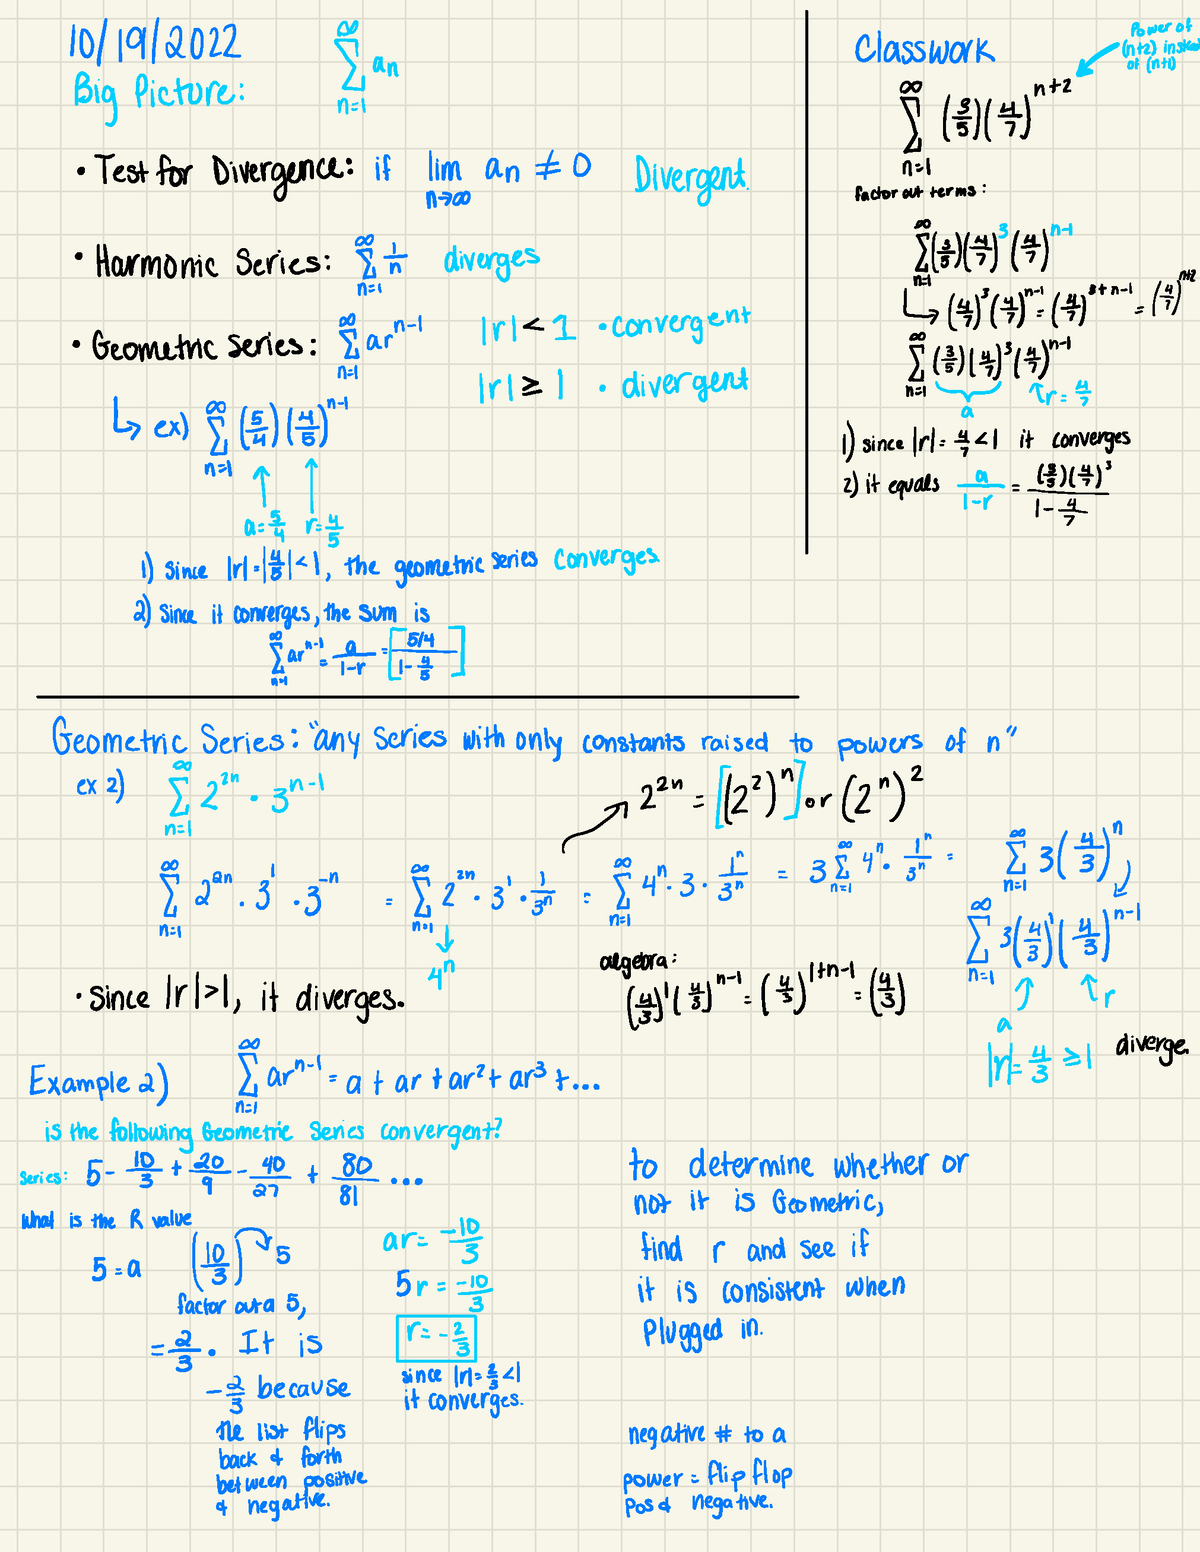 10/19/2022
Big Picture: ∞ Σ n=1 aₙ
• Test for Divergence: if lim n→∞ aₙ ≠ 0 Divergent.
• Harmonic Series: ∞ Σ n=1 1/n diverges
• Geometric Series: ∞ Σ n=1 arⁿ⁻¹ |r| < 1 • convergent
|r| ≥ 1 • divergent
↳ ex) ∞ Σ n=1 (5/4)(4/5)ⁿ⁻¹
a = 5/4 r = 4/5
1) since |r| = |4/5| < 1, the geometric series converges
2) Since it converges, the sum is
∞ Σ n=1 arⁿ⁻¹ = a/(1-r) = [(5/4)/(1 - 4/5)]
Classwork
Power of
(n+2) inste
of (n+1)
∞ Σ n=1 (3/5)(4/7)ⁿ⁺²
factor out terms:
∞ Σ n=1 (3/5)(4/7)³(4/7)ⁿ⁻¹
↳ (4/7)³(4/7)ⁿ⁻¹ = (4/7)³⁺ⁿ⁻¹ = (4/7)ⁿ⁺²
∞ Σ n=1 (3/5)(4/7)³(4/7)ⁿ⁻¹
a r = 4/7
1) since |r| = 4/7 < 1 it converges
2) it equals a/(1-r) = (3/5)(4/7)³/(1 - 4/7)
Geometric Series: "any series with only constants raised to powers of n"
ex 2) ∞ Σ n=1 2²ⁿ · 3ⁿ⁻¹
2²ⁿ = [(2²)ⁿ] or (2ⁿ)²
∞ Σ n=1 2²ⁿ · 3¹ · 3⁻ⁿ = ∞ Σ n=1 2²ⁿ · 3¹ · 1/3ⁿ = ∞ Σ n=1 4ⁿ · 3 · 1ⁿ/3ⁿ = 3 ∞ Σ n=1 4ⁿ · 1ⁿ/3ⁿ = ∞ Σ n=1 3(4/3)ⁿ
4ⁿ
∞ Σ n=1 3(4/3)¹(4/3)ⁿ⁻¹
a r
|r| = 4/3 ≥ 1 diverge.
algebra:
(4/3)¹(4/3)ⁿ⁻¹ = (4/3)¹⁺ⁿ⁻¹ = (4/3)
• Since |r| > 1, it diverges.
Example 2) ∞ Σ n=1 arⁿ⁻¹ = a + ar + ar² + ar³ + ...
is the following Geometric Series convergent?
Series: 5 - 10/3 + 20/9 - 40/27 + 80/81 ...
What is the R value
5 = a (10/3) 5
factor out a 5,
= 2/3. It is
-2/3 because
the list flips
back & forth
between positive
& negative.
ar = -10/3
5r = -10/3
r = -2/3
since |r| = 2/3 < 1
it converges.
to determine whether or
not it is Geometric,
find r and see if
it is consistent when
plugged in.
negative # to a
power = flip flop
pos & negative.